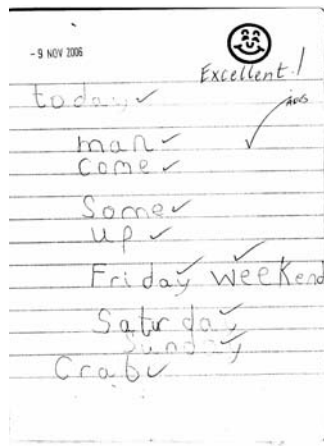 - 9 NOV 2006
Excellent!
today
man
come
Some
up
Friday weekend
Saturday
Sunday
Crab